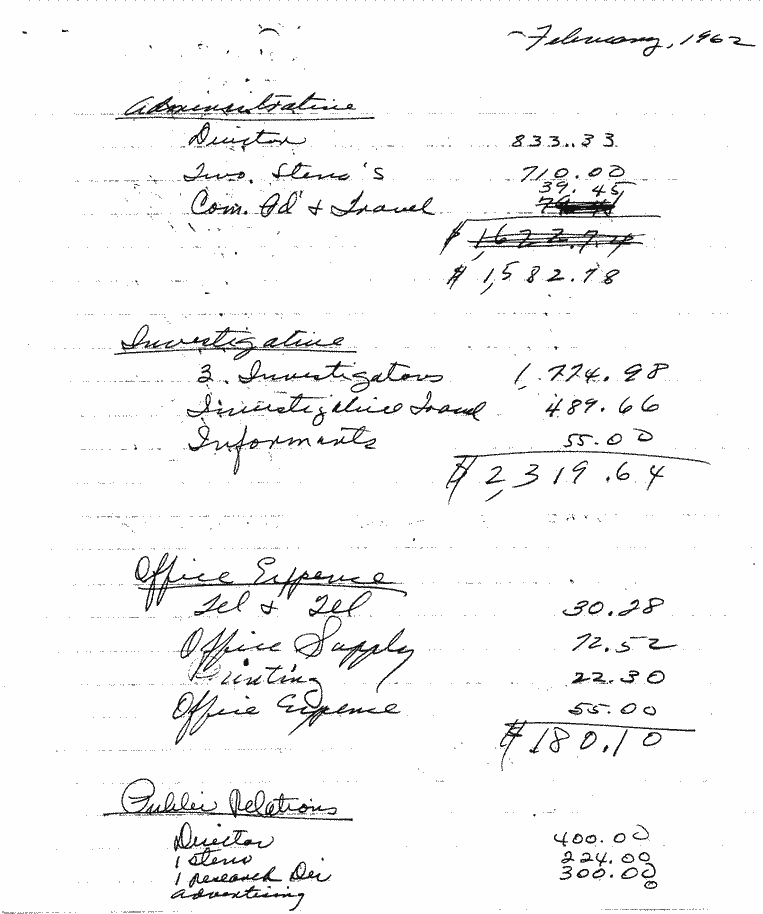 February, 1962
Administrative
Director 833.33
Two. Steno's 710.00
39.45
Com. Ad' & Travel
$ 1,622.74
$ 1,582.78
Investigative
3. Investigators 1,774.98
Investigative Travel 489.66
Informants 55.00
$ 2,319.64
Office Expence
Tel & Tel 30.28
Office Supply 72.52
Printing 22.30
Office Expence 55.00
$ 180.10
Public Relations
Director 400.00
1 Steno 224.00
1 Research Dir 300.00
Advertising 0